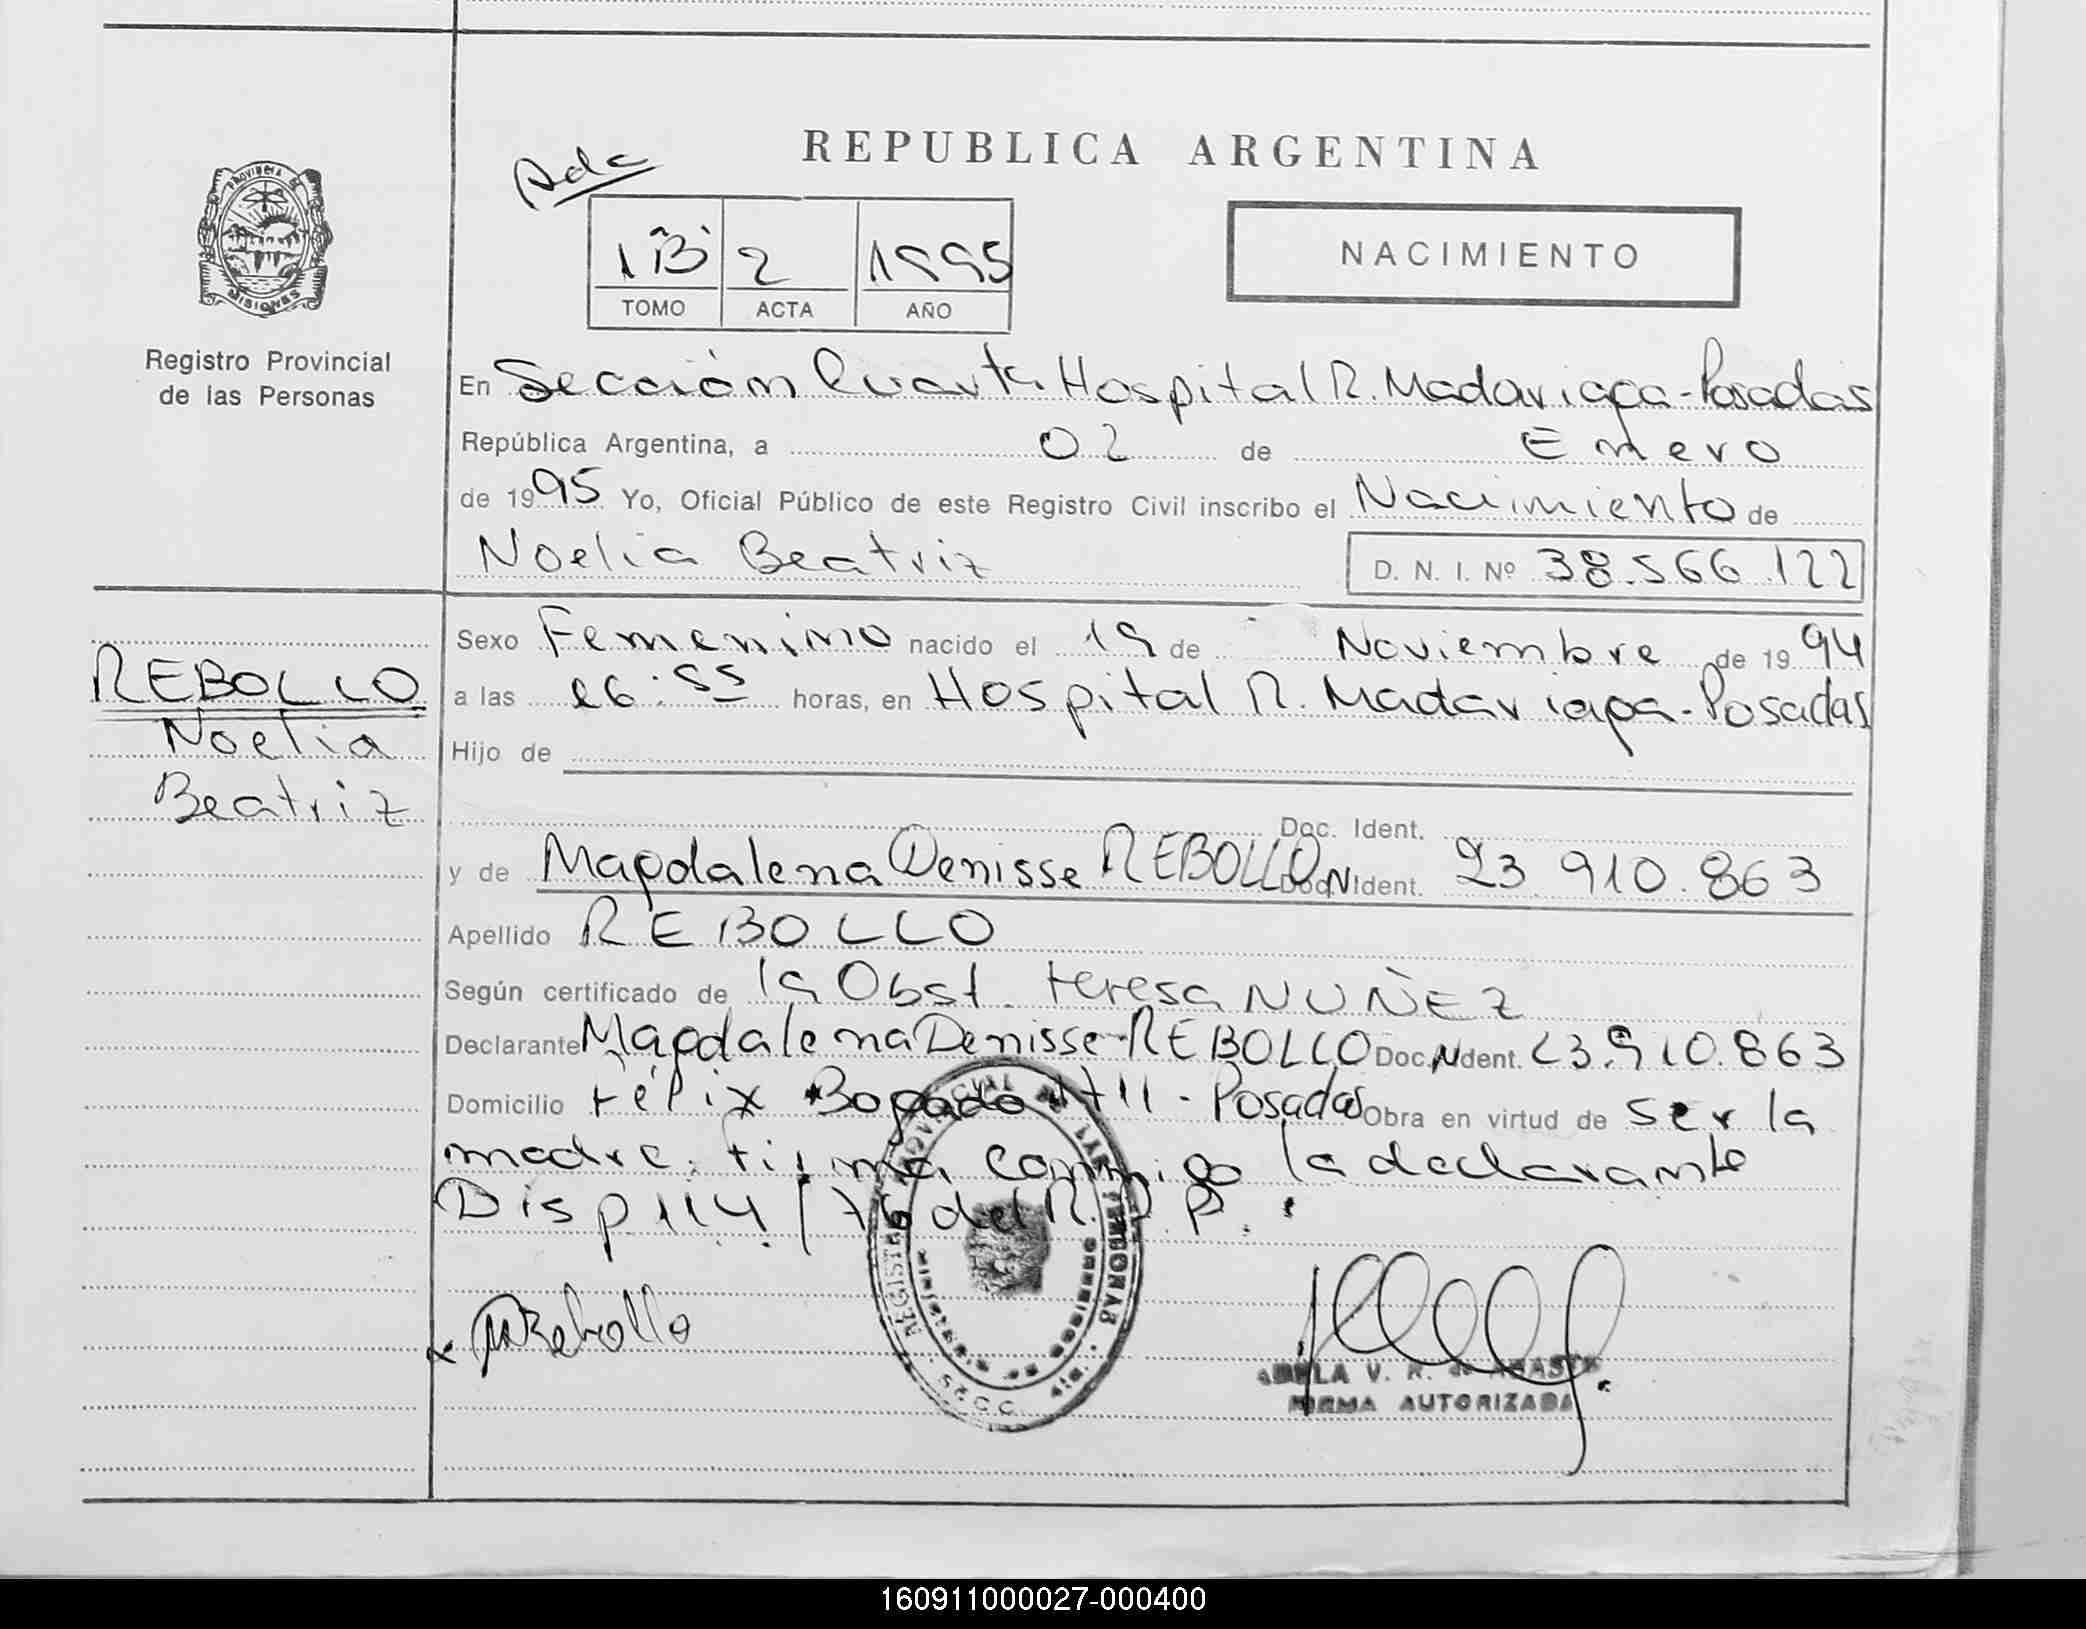 REPUBLICA ARGENTINA
PROVINCIA DE
MISIONES
Registro Provincial
de las Personas
1"B" 2 1995
TOMO ACTA AÑO
NACIMIENTO
En Sección Cuarta Hospital R. Madariaga-Posadas
República Argentina, a 02 de Enero
de 1995 Yo, Oficial Público de este Registro Civil inscribo el Nacimiento de
Noelia Beatriz D. N. I. Nº 38.566.122
Sexo Femenino nacido el 19 de Noviembre de 1994
REBOLLO
Noelia
Beatriz
a las 06:55 horas, en Hospital R. Madariaga-Posadas
Hijo de
Doc. Ident.
y de Magdalena Denisse REBOLLO Doc. Ident. 23.910.863
Apellido REBOLLO
Según certificado de la Obst. teresa NUÑEZ
Declarante Magdalena Denisse REBOLLO Doc. Ident. 23.910.863
Domicilio Félix Bogado - Posadas Obra en virtud de ser la
madre. firma conmigo la declarante
Disp 114/76 del R.P.P.
x MRebollo
V. R. de
FIRMA AUTORIZADA
160911000027-000400